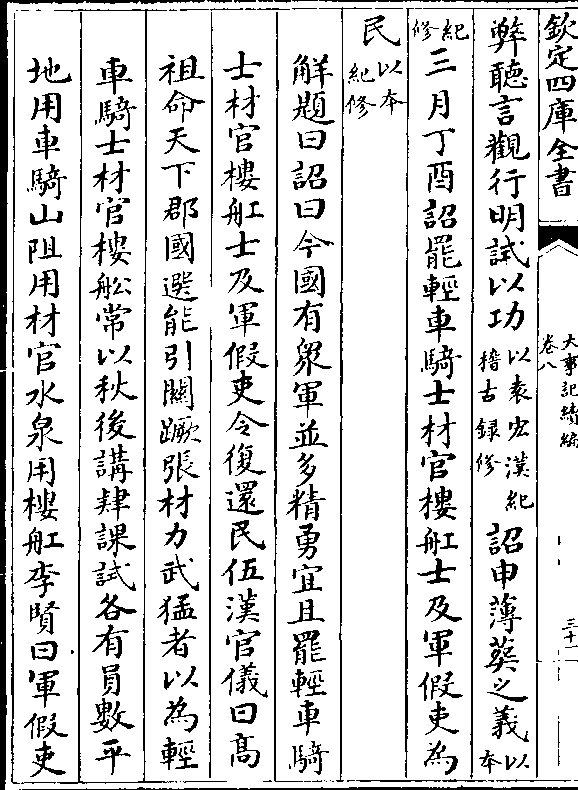 欽定四庫全書
大事記續編
卷八
三十一
辭聽言觀行明試以功以袁宏漢紀稽古録修詔申薄葬之義以本
紀修三月丁酉詔罷輕車騎士材官樓舡士及軍假吏為
民以本紀修
解題曰詔曰今國有衆軍並多精勇宜且罷輕車騎
士材官樓舡士及軍假吏令復還民伍漢官儀曰高
祖命天下郡國選能引關蹶張材力武猛者以為輕
車騎士材官樓舩常以秋後講肄課試各有員數平
地用車騎山阻用材官水泉用樓舡李賢曰軍假吏